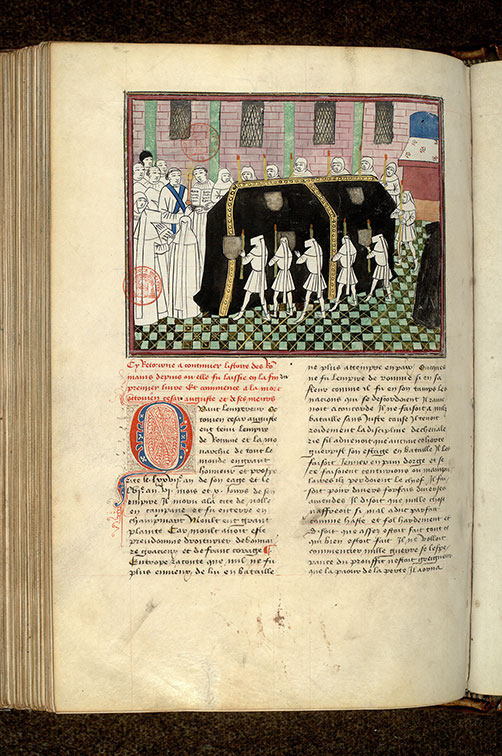 Cy Retourne a continuer listoire des Ro
mains depuis quelle fu laissie en la fin du
premier liure Et commence a la mort
ottouien cesar auguste et de ses meurs
Quant lempereur oc
touien cesar auguste
eut tenu lempire
de Romme et la mo
narchie de tout le
monde en grant
honneur et prospe
rite le an de son eage et le
an mois et jours de son
empire Il morut a la cite de nolle
en campane et fu enterre en
champmars Moult eut grant
plainte Car moult estoit
preudomme droiturier debonnai
re gracieux et de franc corage
Eutrope raconte que nul ne fu
plus eureux de lui en bataille
ne plus attempre en paix
ne fu lempire de romme si en sa
fleur comme il fu en son temps les
nacions qui se discordoient Il rame
noit a concorde Il ne faisoit a nulz
bataille sans juste cause Il tenoit
roidement la discipline de cheuale
rie sil aduenoit que aucune cohorte
guerpist son estage en bataille Il les
faisoit
se ce faisoient centurions ou manipu
laires ilz perdoient le chief Il fai
soit pour diuers forfais diuerses
amendes Il disoit que nulle chose
naffreoit si mal a duc parfait
comme haste et fol hardement et
disoit que assez estoit fait tout ce
qui bien estoit fait Il ne vouloit
commencier nulle guerre se lespe
rance du prouffit nestoit greigneur
que la paour de la perte Il